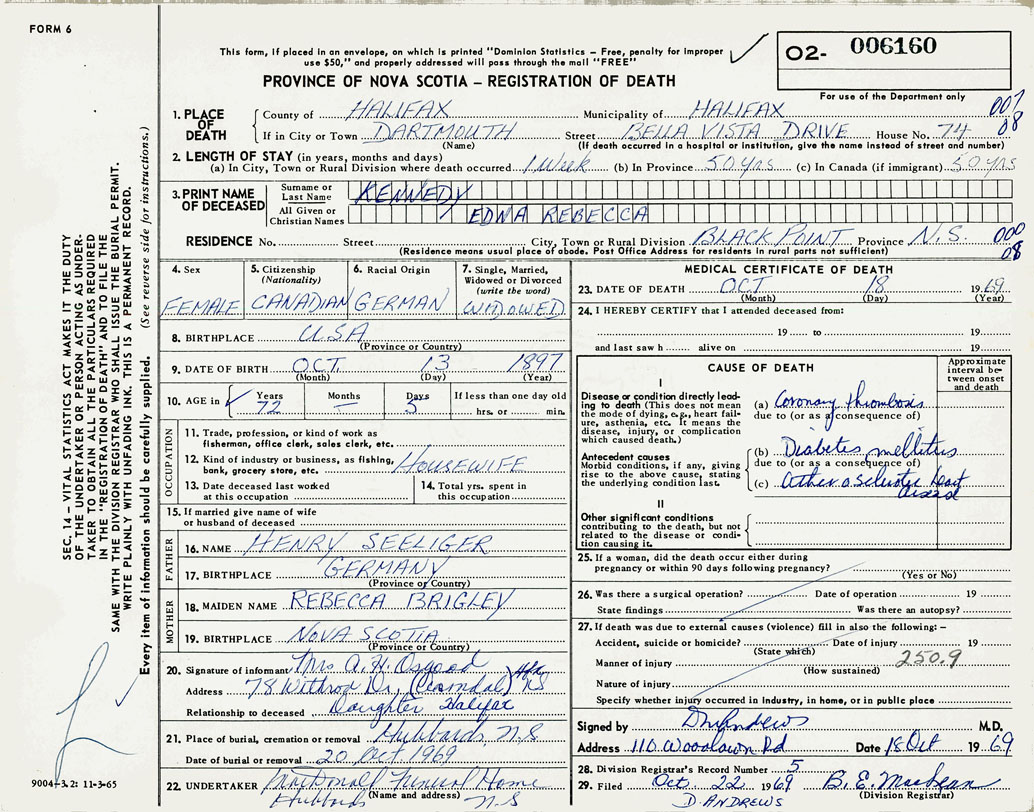 FORM 6
This form, if placed in an envelope, on which is printed "Dominion Statistics – Free, penalty for improper
use $50," and properly addressed will pass through the mail "FREE"
O2- 006160
PROVINCE OF NOVA SCOTIA – REGISTRATION OF DEATH
For use of the Department only
1. PLACE OF DEATH
County of HALIFAX Municipality of HALIFAX 007
If in City or Town DARTMOUTH Street BELLA VISTA DRIVE House No. 74 08
(Name) (If death occurred in a hospital or institution, give the name instead of street and number)
2. LENGTH OF STAY (in years, months and days)
(a) In City, Town or Rural Division where death occurred 1 Week (b) In Province 50 yrs (c) In Canada (if immigrant) 50 yrs
3. PRINT NAME OF DECEASED
Surname or Last Name KENNEDY
All Given or Christian Names EDNA REBECCA
RESIDENCE No. Street City, Town or Rural Division BLACK POINT Province N.S. 000
(Residence means usual place of abode. Post Office Address for residents in rural parts not sufficient) 08
4. Sex
FEMALE
5. Citizenship
(Nationality)
CANADIAN
6. Racial Origin
GERMAN
7. Single, Married,
Widowed or Divorced
(write the word)
WIDOWED
8. BIRTHPLACE USA
(Province or Country)
9. DATE OF BIRTH OCT. 13 1897
(Month) (Day) (Year)
10. AGE in Years Months Days If less than one day old
72 — 5 hrs. or min.
OCCUPATION
11. Trade, profession, or kind of work as
fisherman, office clerk, sales clerk, etc.
12. Kind of industry or business, as fishing,
bank, grocery store, etc. HOUSEWIFE
13. Date deceased last worked
at this occupation
14. Total yrs. spent in
this occupation
15. If married give name of wife
or husband of deceased
FATHER
16. NAME HENRY SEELIGER
17. BIRTHPLACE GERMANY
(Province or Country)
MOTHER
18. MAIDEN NAME REBECCA BRIGLEY
19. BIRTHPLACE NOVA SCOTIA
(Province or Country)
20. Signature of informant Mrs A. H. Osgood
Address 78 Withrod Dr, Hfx NS
Relationship to deceased Daughter Halifax
21. Place of burial, cremation or removal Hubbards, N.S
Date of burial or removal 20 Oct 1969
22. UNDERTAKER Funeral Home
(Name and address)
Hubbards NS
MEDICAL CERTIFICATE OF DEATH
23. DATE OF DEATH OCT 18 1969
(Month) (Day) (Year)
24. I HEREBY CERTIFY that I attended deceased from:
19 to 19
and last saw h alive on 19
CAUSE OF DEATH
Approximate
interval be-
tween onset
and death
I
Disease or condition directly lead-
ing to death (This does not mean
the mode of dying, e.g., heart fail-
ure, asthenia, etc. It means the
disease, injury, or complication
which caused death.)
(a) Coronary thrombosis
due to (or as a consequence of)
Antecedent causes
Morbid conditions, if any, giving
rise to the above cause, stating
the underlying condition last.
(b) Diabetes mellitus
due to (or as a consequence of)
(c) Heart
disease
II
Other significant conditions
contributing to the death, but not
related to the disease or condi-
tion causing it.
25. If a woman, did the death occur either during
pregnancy or within 90 days following pregnancy?
(Yes or No)
26. Was there a surgical operation? Date of operation 19
State findings Was there an autopsy?
27. If death was due to external causes (violence) fill in also the following: –
Accident, suicide or homicide? Date of injury 19
(State which)
Manner of injury 250.9
(How sustained)
Nature of injury
Specify whether injury occurred in industry, in home, or in public place
Signed by D Andrews M.D.
Address 110 Woodlawn Rd Date 18 Oct 1969
28. Division Registrar's Record Number 5
29. Filed Oct. 22 1969 B. E.
(Division Registrar)
D. ANDREWS
SEC. 14 – VITAL STATISTICS ACT MAKES IT THE DUTY
OF THE UNDERTAKER OR PERSON ACTING AS UNDER-
TAKER TO OBTAIN ALL THE PARTICULARS REQUIRED
IN THE "REGISTRATION OF DEATH" AND TO FILE THE
SAME WITH THE DIVISION REGISTRAR WHO SHALL ISSUE THE BURIAL PERMIT.
WRITE PLAINLY WITH UNFADING INK. THIS IS A PERMANENT RECORD.
Every item of information should be carefully supplied. (See reverse side for instructions.)
9004–3.2: 11-3-65